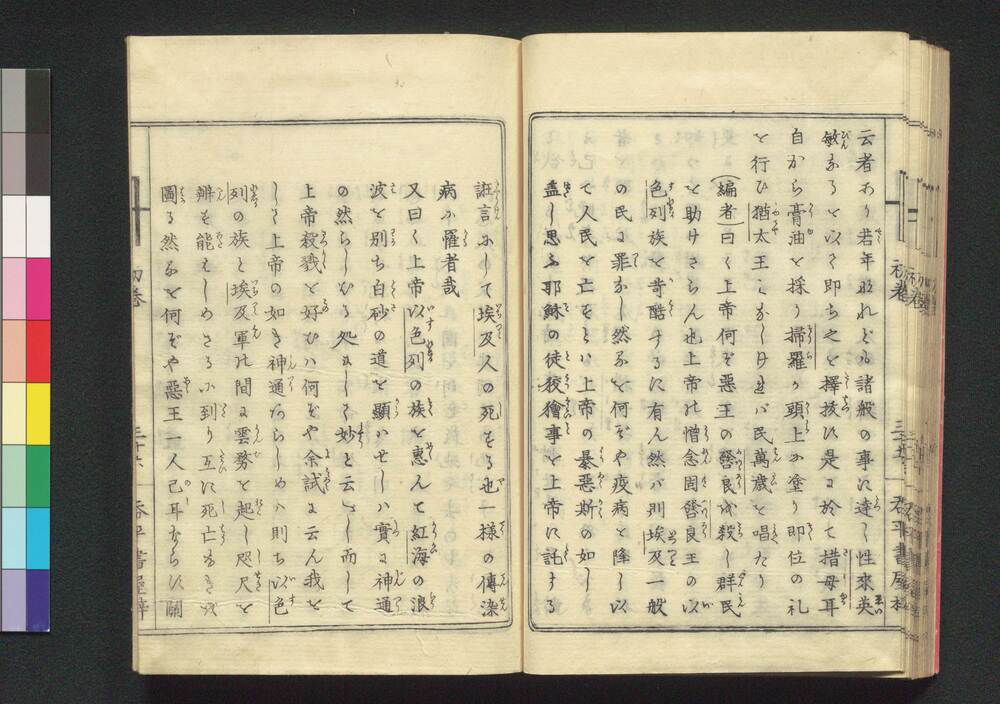 云者あり若年なれども諸般の事に達し性來英
敏なるを以て即ち之を擇抜ひ是に於て措母耳
自から膏油を採り掃羅が頭上に塗り即位の礼
を行ひ猶太王となしければ民萬歳を唱たり
(編者)曰く上帝何ぞ惡王の啓良を殺し群民
を助けさらん也上帝の憎念固啓良王の以
色列族を苛酷するに有ん然ば則埃及一般
の民に罪なし然るを何ぞや疫病を降し以
て人民を亡すとは上帝の暴惡斯の如し
盖し思ふ耶穌の徒狡獪事を上帝に託する
誑言にして埃及人の死する也一様の傳染
病に罹者哉
又曰く上帝以色列の族を惠んて紅海の浪
波を別ち白砂の道を顯はせしは實に神通
の然らしむる処にして妙と云べし而して
上帝殺戮を好むは何ぞや余試に云ん我を
して上帝の如き神通あらしめは則ち以色
列の族と埃及軍の間に雲霧を起し咫尺を
辨も能はしめさるに到り互に死亡なき
圖る然るを何ぞや惡王一人已耳ならず關
初巻
三十六